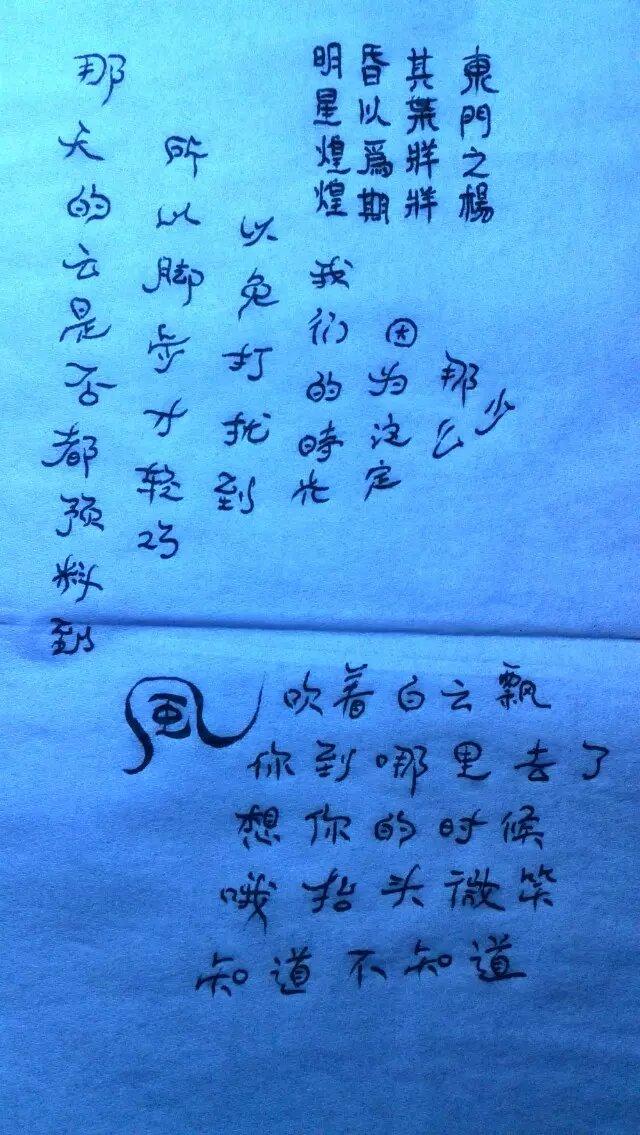 東門之楊
其葉牂牂
昏以爲期
明星煌煌
那天的云是否都预料到
所以脚步才轻巧
以免打扰到
我们的時光
因为注定
那么少
風吹着白云飘
你到哪里去了
想你的时候
哦抬头微笑
知道不知道